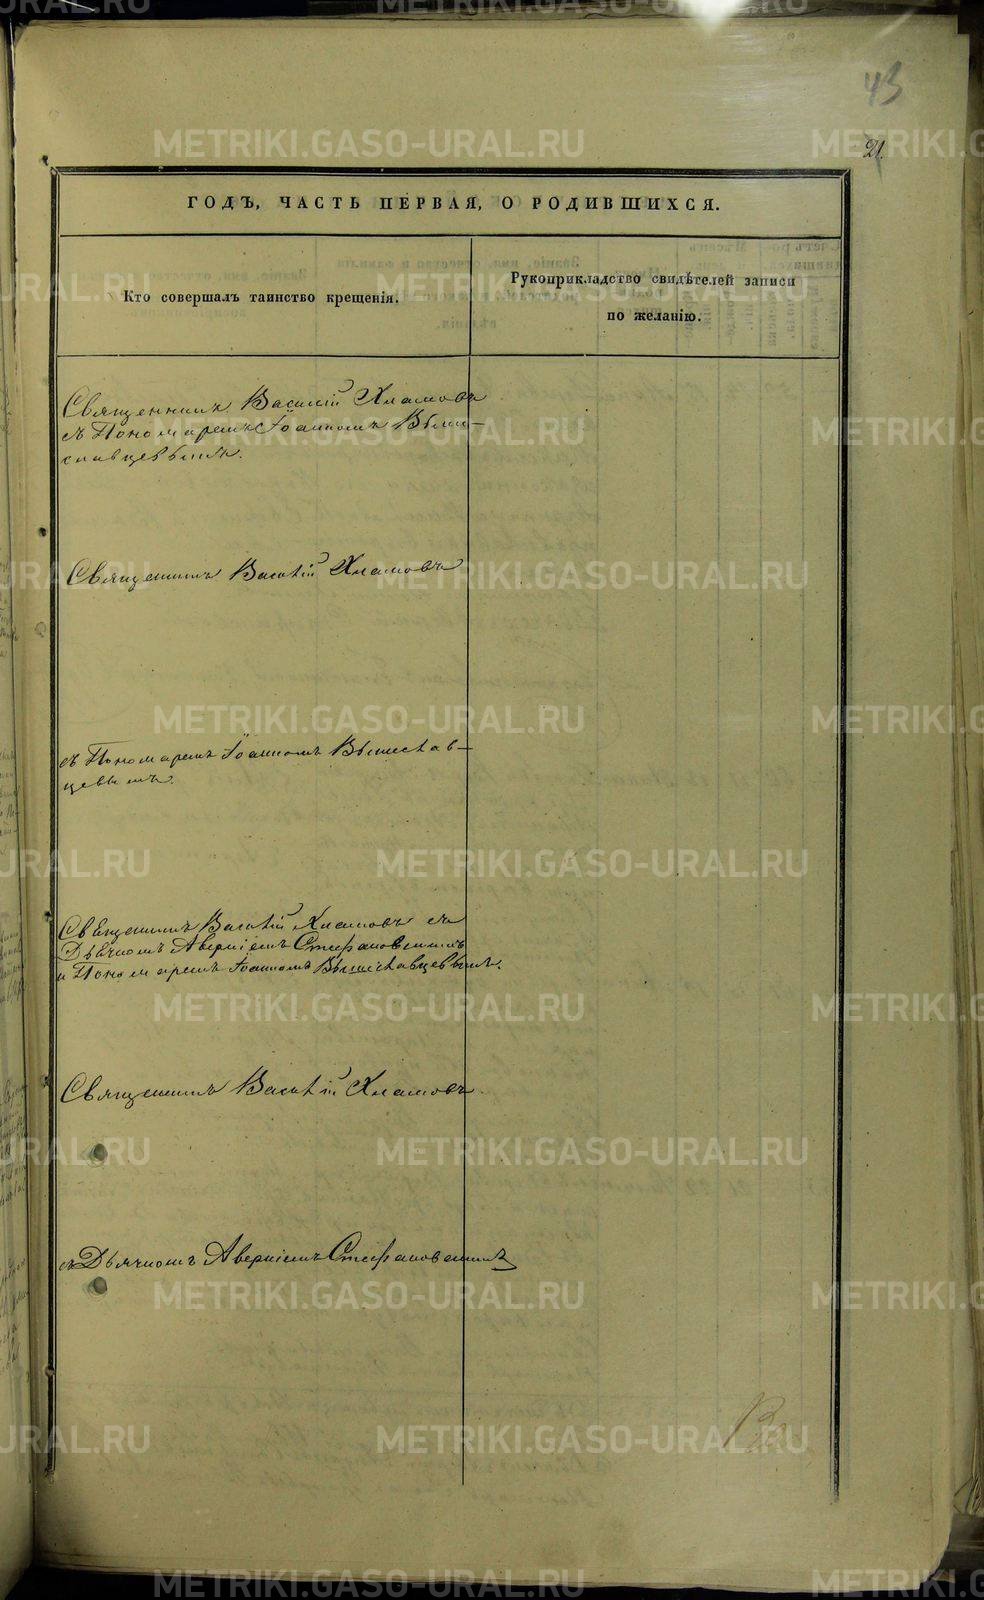 43
21.
ГОДЪ, ЧАСТЬ ПЕРВАЯ, О РОДИВШИХСЯ.
Кто совершалъ таинство крещенія.
Рукоприкладство свидѣтелей записи
по желанію.
Священникъ Василій Хламовъ
съ Пономаремъ Іоанномъ Выши-
славцевымъ.
Священникъ Василій Хламовъ
съ Пономаремъ Іоанномъ Вышеслав-
цевымъ.
Священникъ Василій Хламовъ съ
Дьячкомъ Аверкіемъ Стефановскимъ
и Пономаремъ Іоанномъ Вышеславцевымъ.
Священникъ Василій Хламовъ.
съ Дьячкомъ Аверкіемъ Стефановскимъ
METRIKI.GASO-URAL.RU